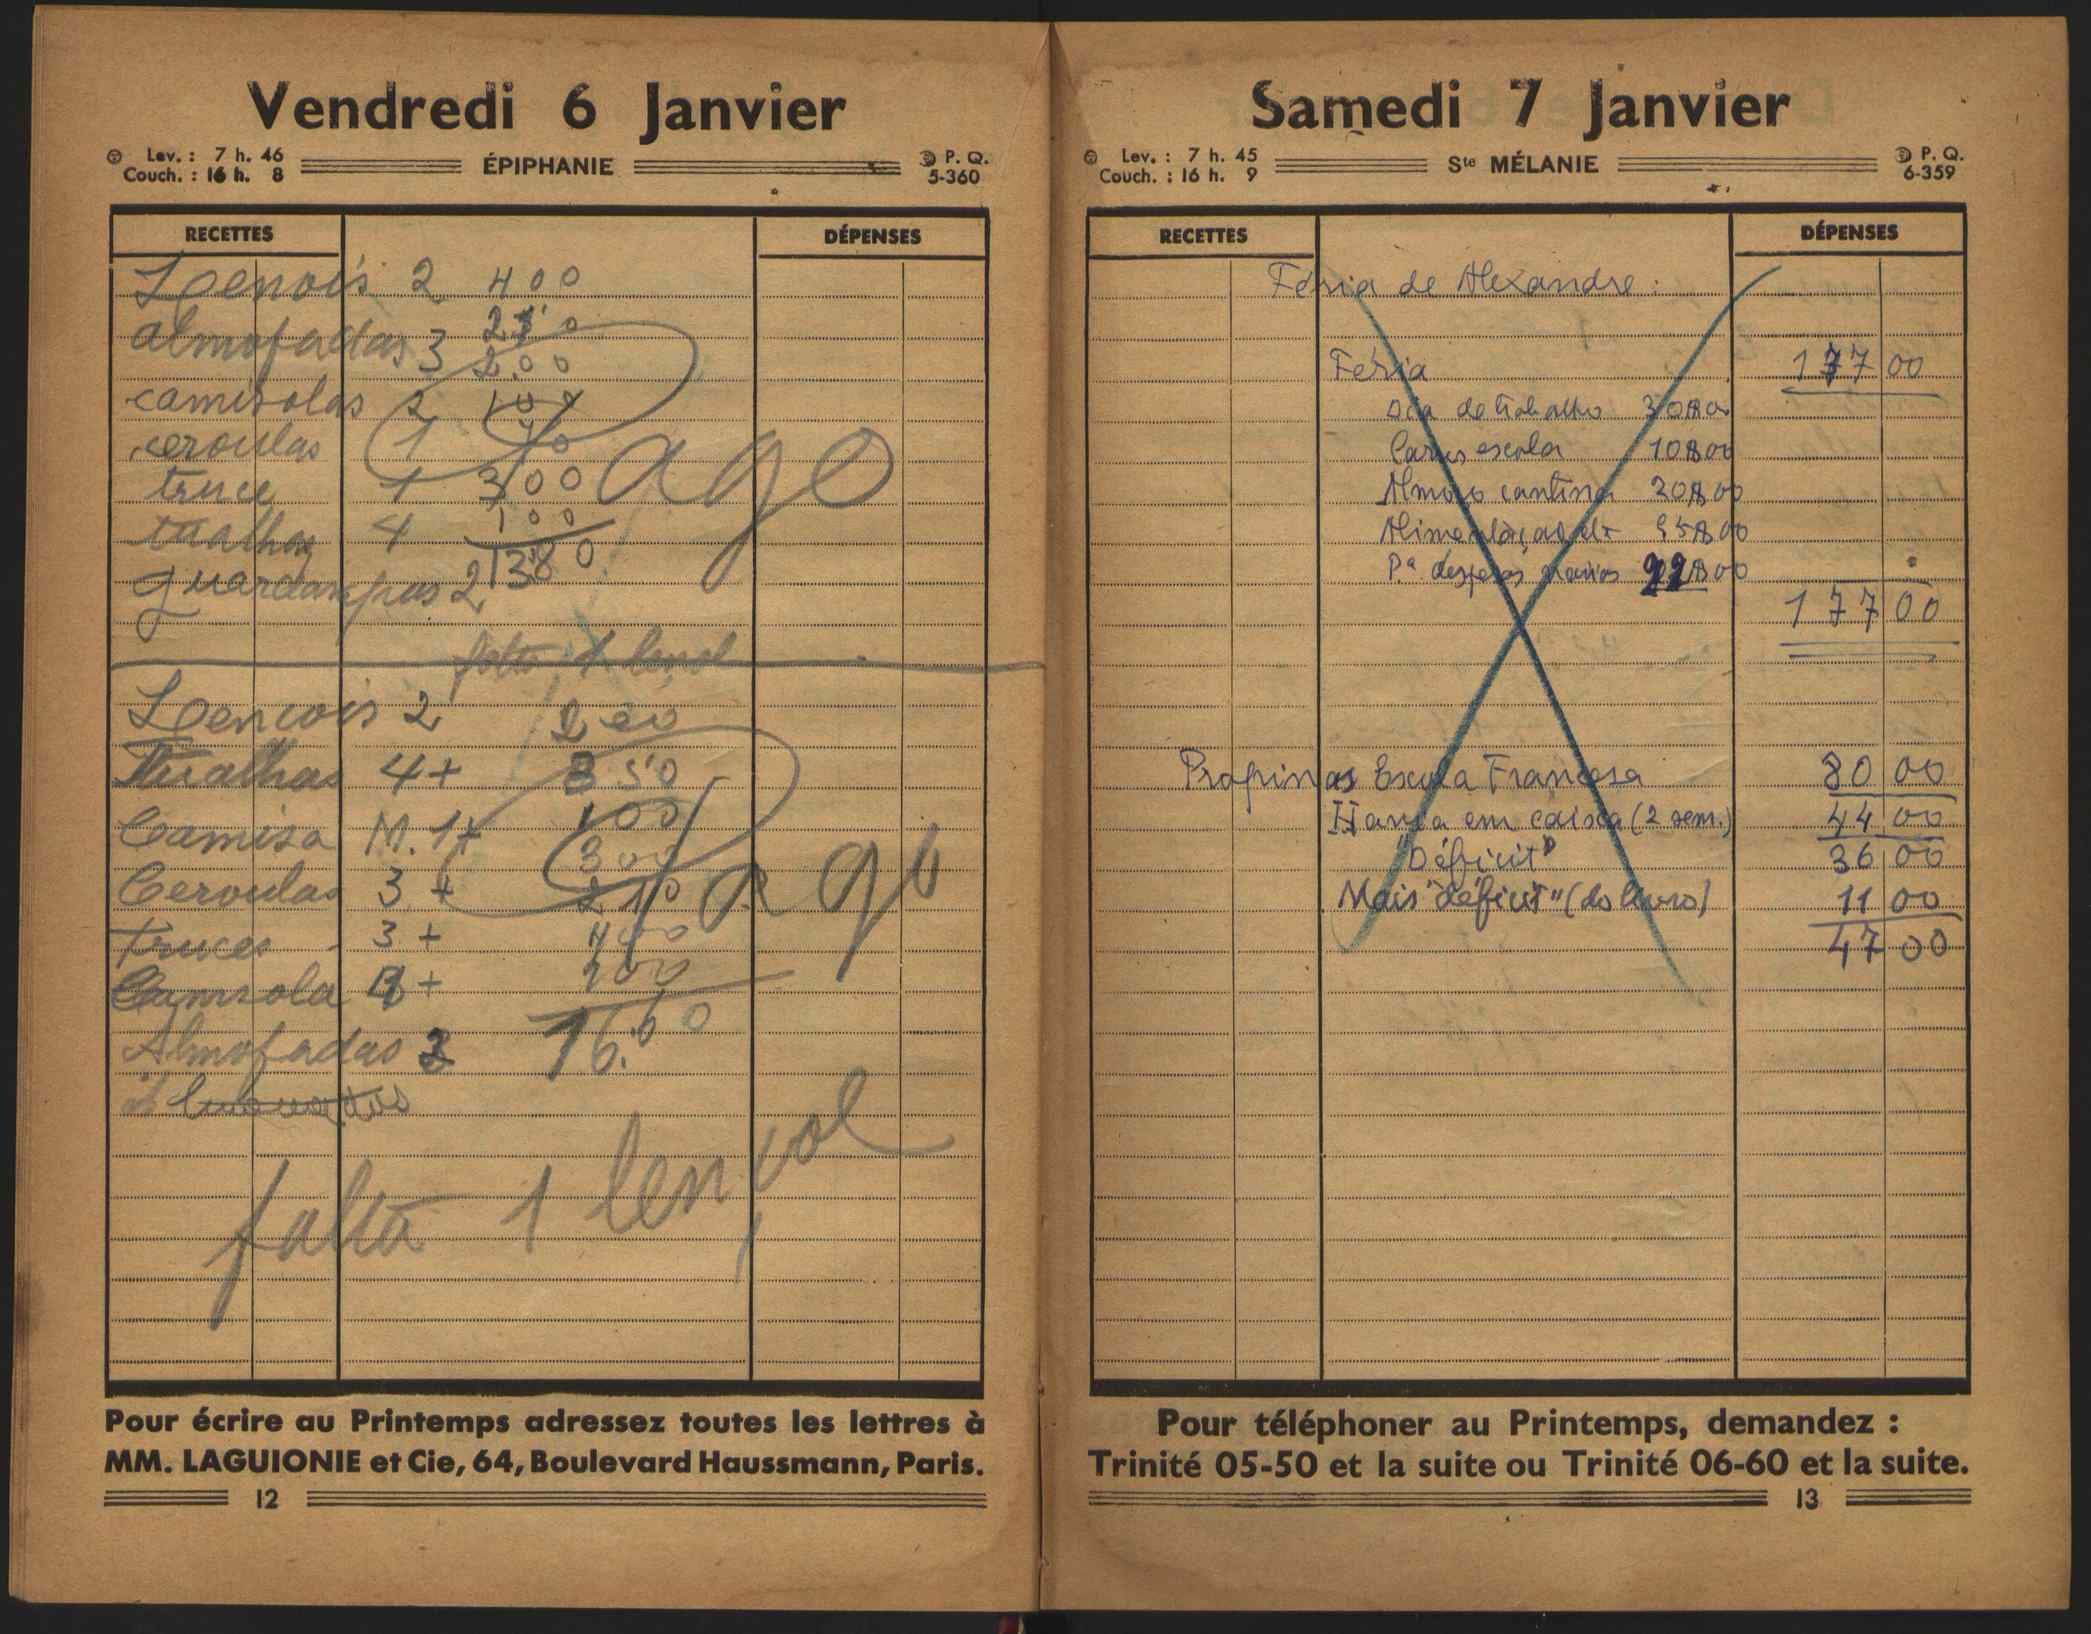 Vendredi 6 Janvier
Lev. : 7 h. 46
Couch. : 16 h. 8
ÉPIPHANIE
P. Q.
5-360
RECETTES
DÉPENSES
Lenois 2 400
almofadas 3
200
camisolas 2 100
ceroulas 1
truce 1 300
toalhas 4 100
guardanapos 2 1380
Pago
falta 1 lençol
Lencois 2 200
Tualhas 4+ 350
Camisa M. 1+ 100
Ceroulas 3 + 300
210
Truces 3 + 400
Camisola 1+ 200
Almofadas 2 16.60
Pago
falta 1 lençol
Pour écrire au Printemps adressez toutes les lettres à
MM. LAGUIONIE et Cie, 64, Boulevard Haussmann, Paris.
12
Samedi 7 Janvier
Lev. : 7 h. 45
Couch. : 16 h. 9
Ste MÉLANIE
P. Q.
6-359
RECETTES
DÉPENSES
Féria de Alexandre :
Féria 177 00
Dia de trabalho 30$00
Carros escola 10$00
Almoço cantina 20$00
Alimentação 95$00
Pª despesas varias 22$00
177 00
Propinas Escola Francesa 80 00
Havia em caixa (2 sem.) 44 00
"Déficit" 36 00
Mais "déficit" (do livro) 11 00
47 00
Pour téléphoner au Printemps, demandez :
Trinité 05-50 et la suite ou Trinité 06-60 et la suite.
13